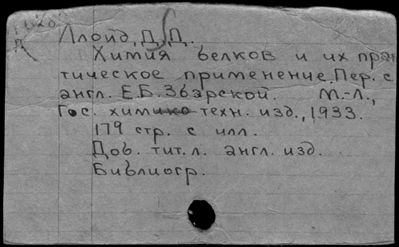 Ллойд, Д. Д.
Химия белков и их прак
тическое применение. Пер. с
англ. Е.Б. Збарской. М.-Л.,
Гос. химико техн. изд., 1933.
179 стр. с илл.
Доб. тит. л. англ. изд.
Библиогр.